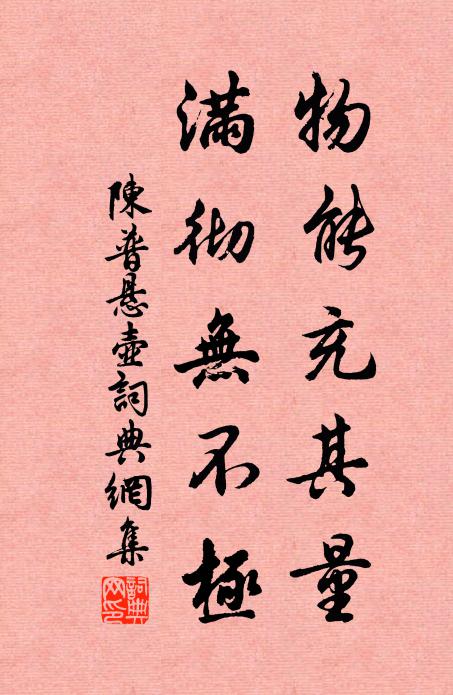 物能充其量
滿彻無不極
陳普悬壺詞典網集
詞典網印